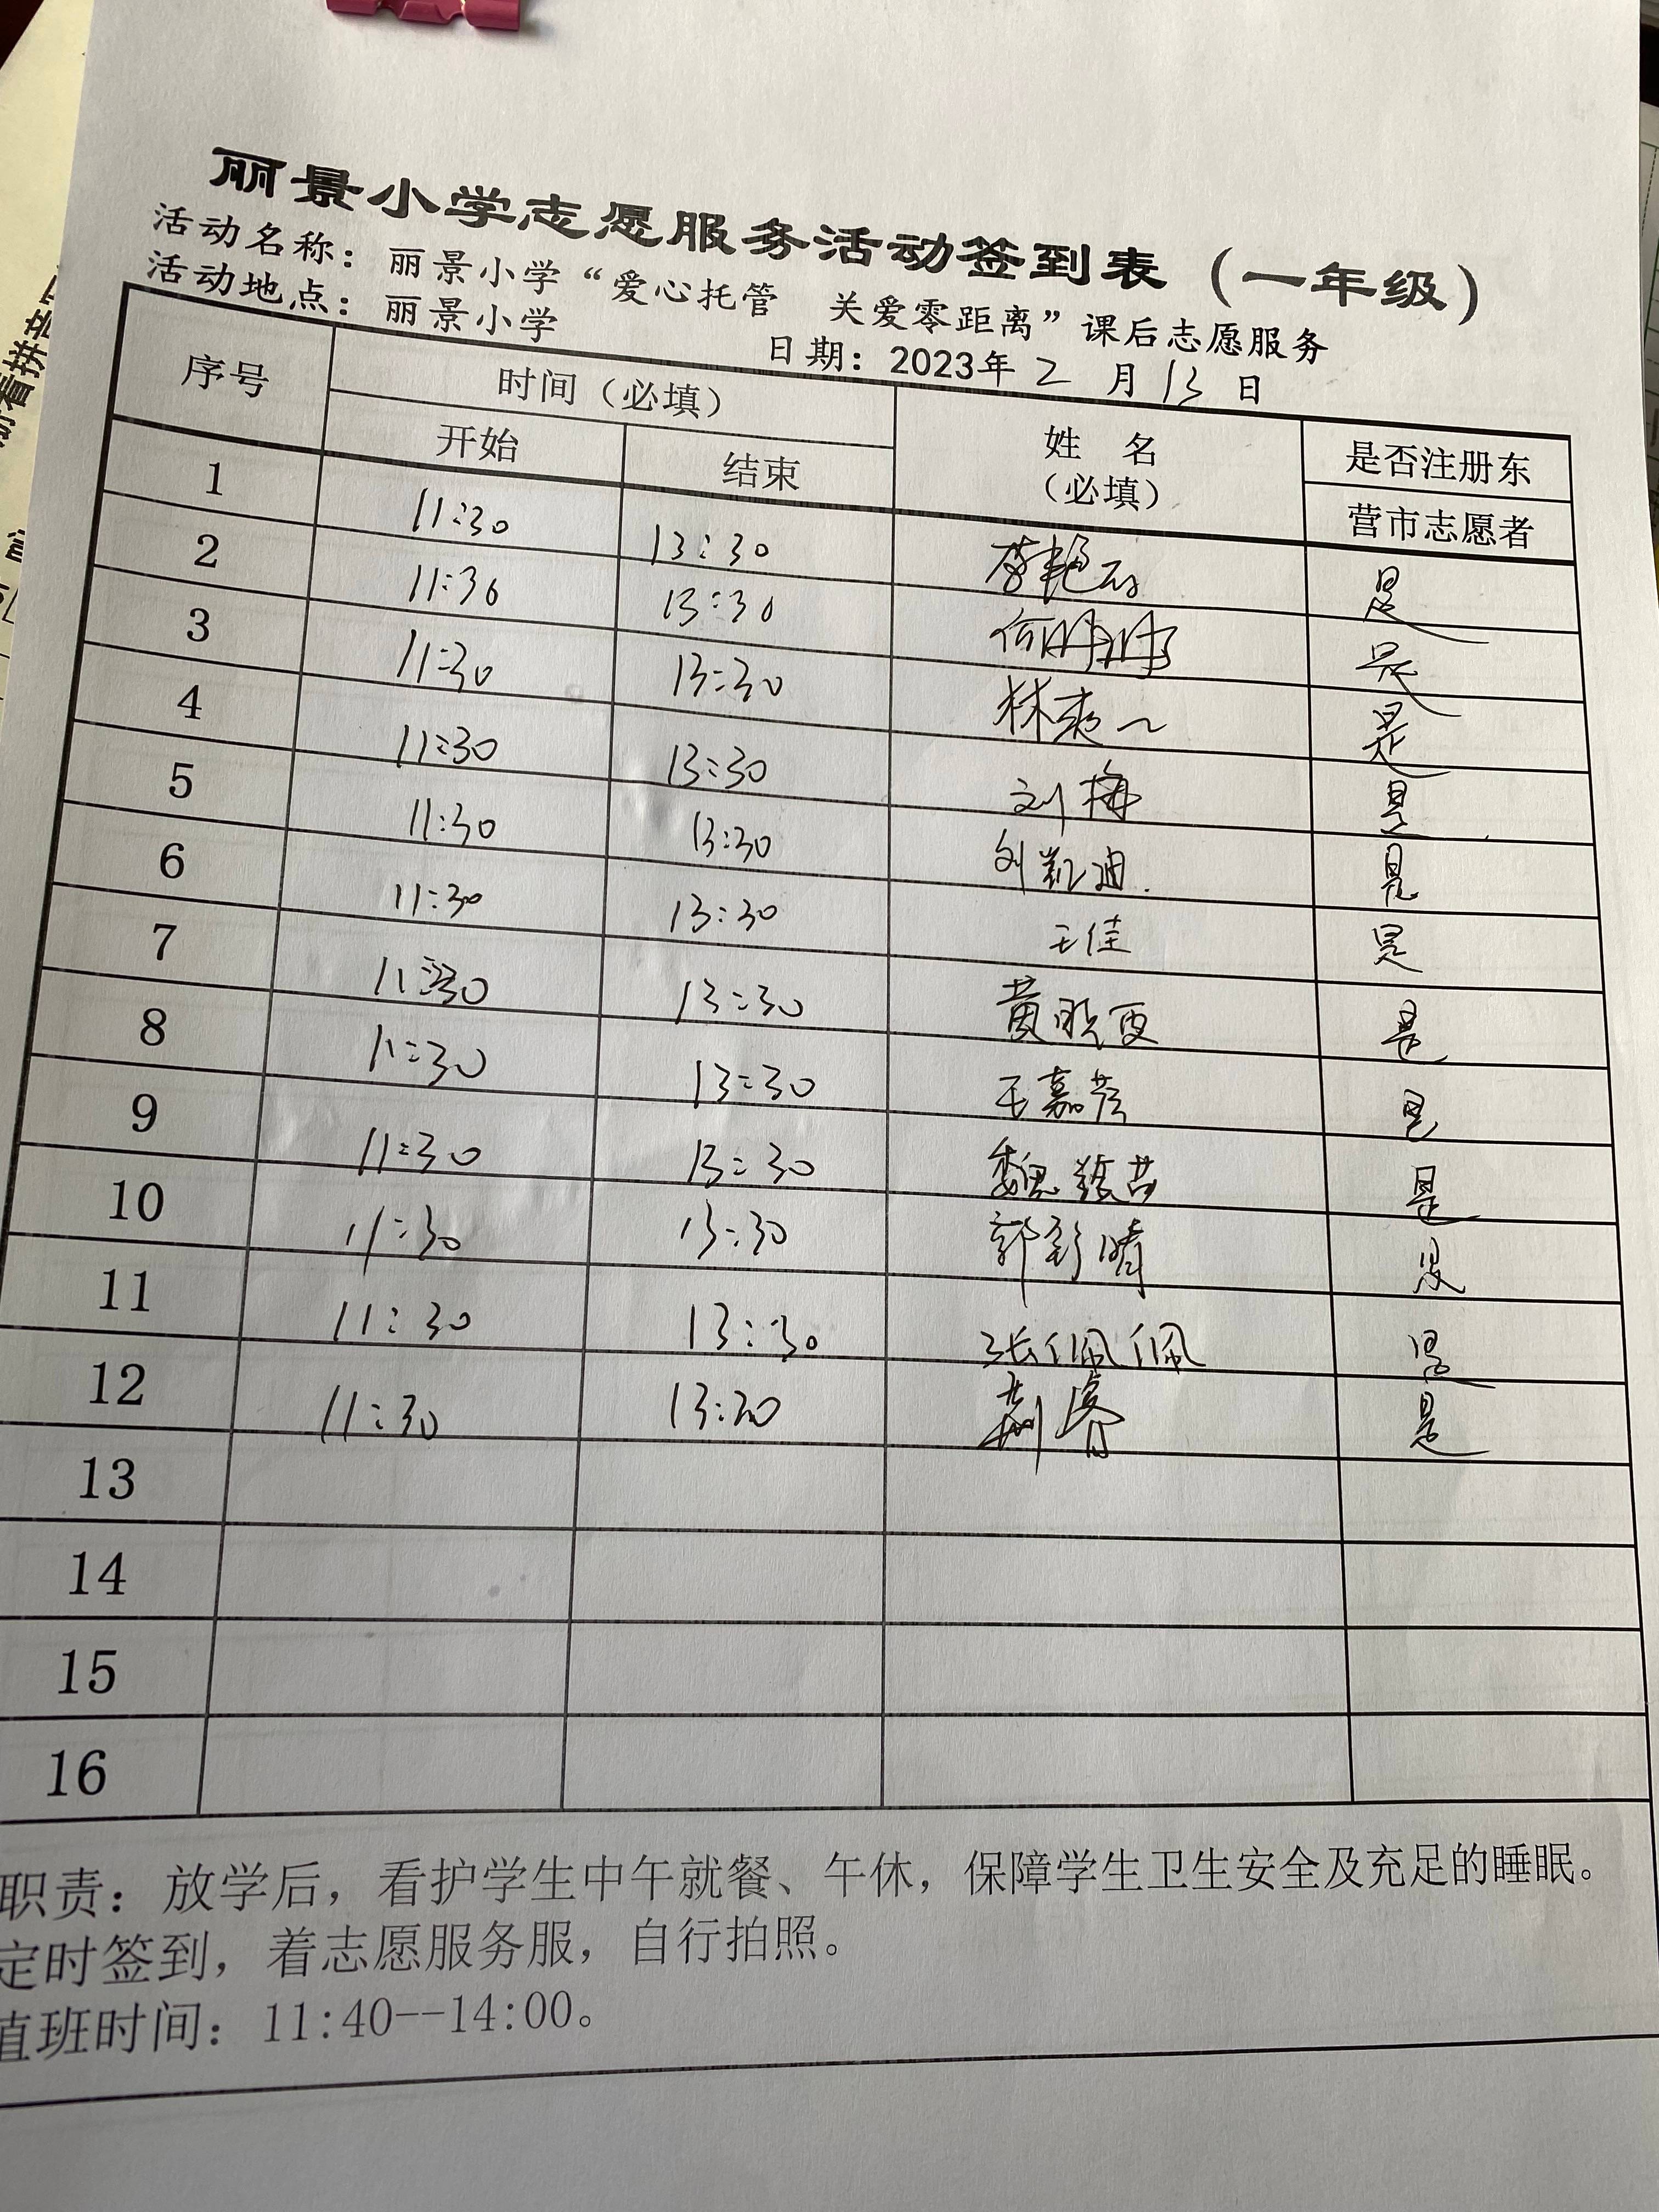 丽景小学志愿服务活动签到表（一年级）
活动名称：丽景小学“爱心托管 关爱零距离”课后志愿服务
活动地点：丽景小学 日期：2023年 2 月 13 日
序号 时间（必填） 姓 名 （必填） 是否注册东
开始 结束 营市志愿者
1 11:30 13:30 李艳 是
2 11:30 13:30 何 是
3 11:30 13:30 林爽 是
4 11:30 13:30 刘梅 是
5 11:30 13:30 刘凯迪 是
6 11:30 13:30 王佳 是
7 11:30 13:30 黄 是
8 11:30 13:30 王嘉 是
9 11:30 13:30 魏 是
10 11:30 13:30 郭彩晴 是
11 11:30 13:30 张佩佩 是
12 11:30 13:30 荆睿 是
13
14
15
16
职责：放学后，看护学生中午就餐、午休，保障学生卫生安全及充足的睡眠。
定时签到，着志愿服务服，自行拍照。
值班时间：11:40--14:00。